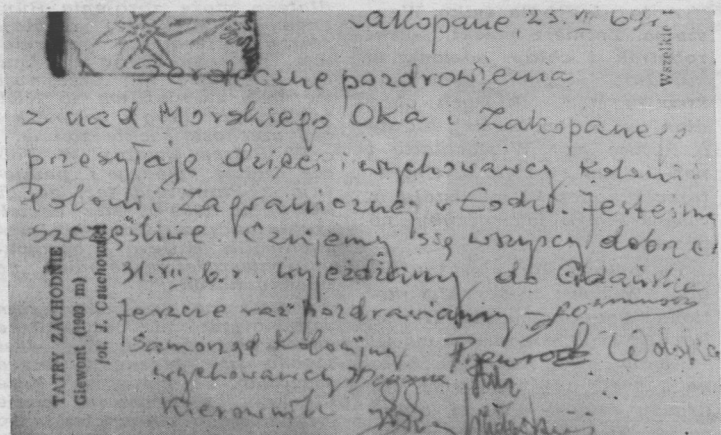 Zakopane, 23. VII 69 r.
Wszelkie
Serdeczne pozdrowienia
z nad Morskiego Oka i Zakopanego
przesyłają dzieci i wychowawcy kolonii
Polonii Zagranicznej w Łodzi. Jesteśmy
szczęśliwe. Czujemy się wszyscy dobrze.
31. VII. b. r. wyjeżdżamy do Gdańska
Jeszcze raz pozdrawiamy
Samorząd Kolonijny
wychowawcy
Kierownik
TATRY ZACHODNIE
Giewont (1909 m)
fot. J. Czuchowski